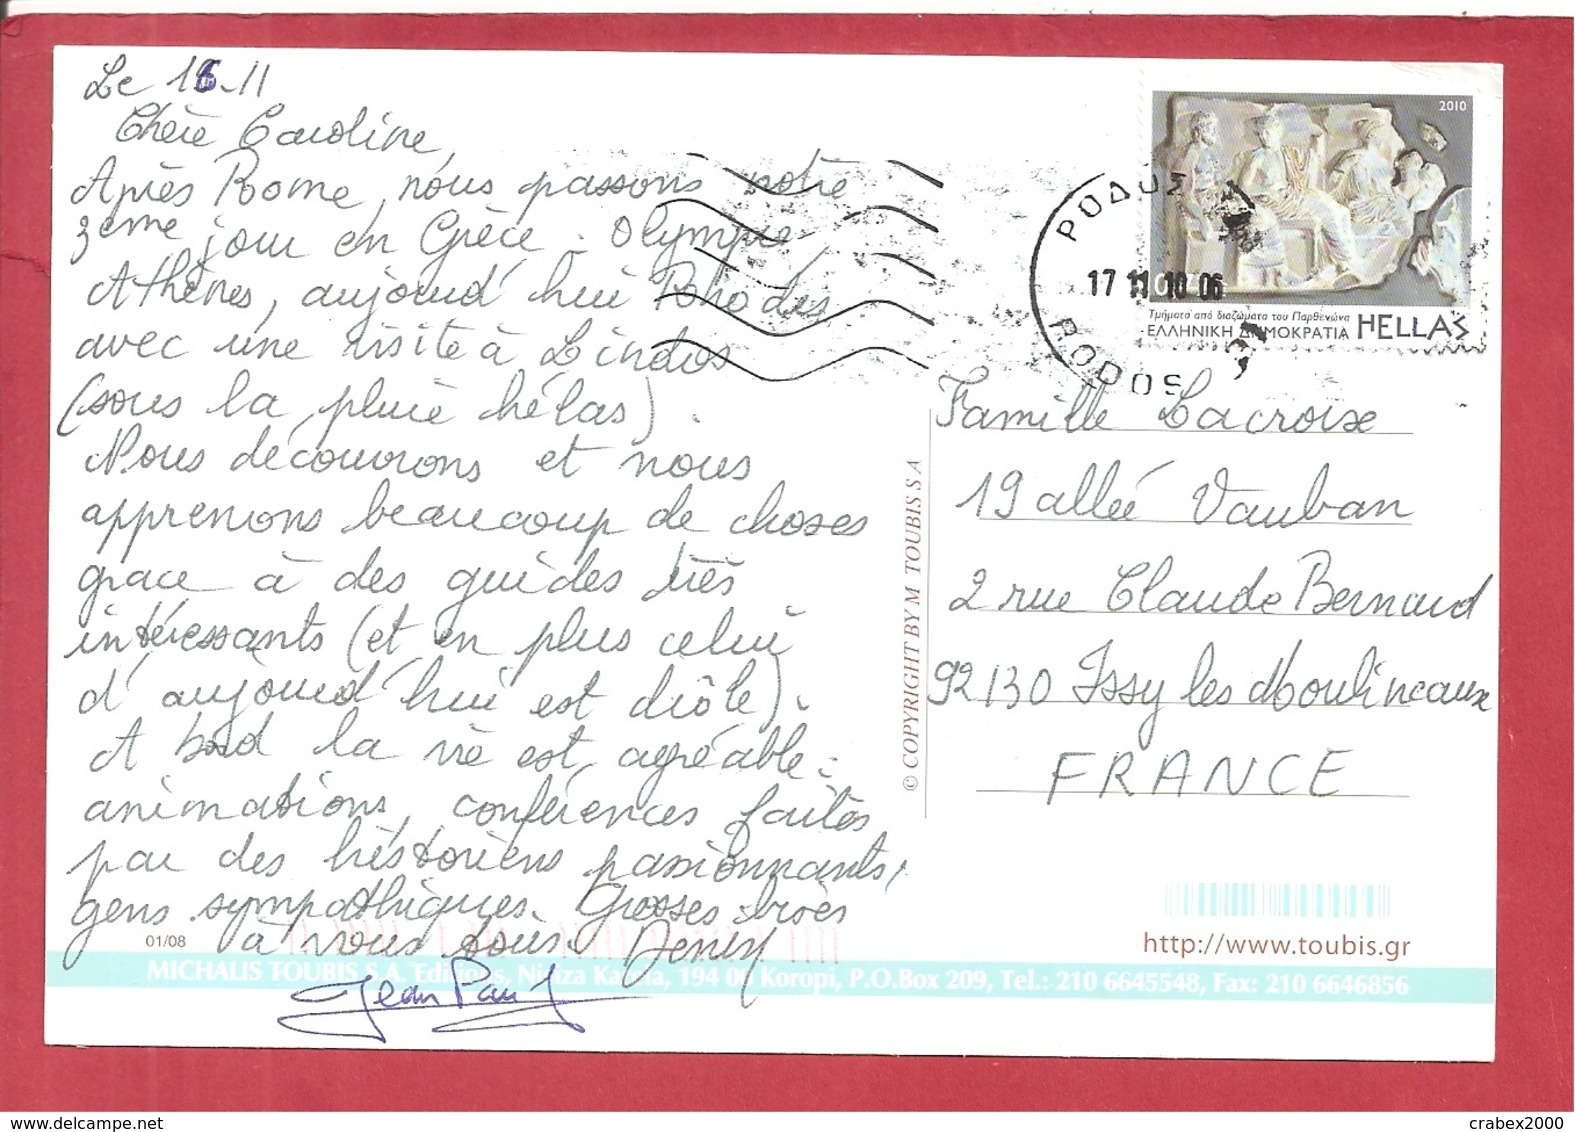 Le 16-11
Chère Caroline,
Après Rome, nous passons notre
3eme jour en Grèce. Olympie
Athènes, aujourd'hui Rhodes
avec une visite à Lindos
(sous la pluie hélas).
Nous découvrons et nous
apprenons beaucoup de choses
grace à des guides très
intéressants (et en plus celui
d'aujourd'hui est drôle).
A bord la vie est agréable:
animations, conférences faites
par des historiens passionnants,
gens sympathiques. Grosses bises
à vous tous.
Jean Paul
01/08
MICHALIS TOUBIS S.A. Editions, 194 00 Koropi, P.O.Box 209, Tel.: 210 6645548, Fax: 210 6646856
© COPYRIGHT BY M TOUBIS S A
2010
Τμήματα από διαζώματα του Παρθενώνα
ΕΛΛΗΝΙΚΗ ΔΗΜΟΚΡΑΤΙΑ HELLAS
ΡΟΔΟΣ
17 11 10 06
RODOS
Famille Lacroix
19 allée Vauban
2 rue Claude Bernard
92130 Issy les Moulineaux
FRANCE
http://www.toubis.gr
crabex2000